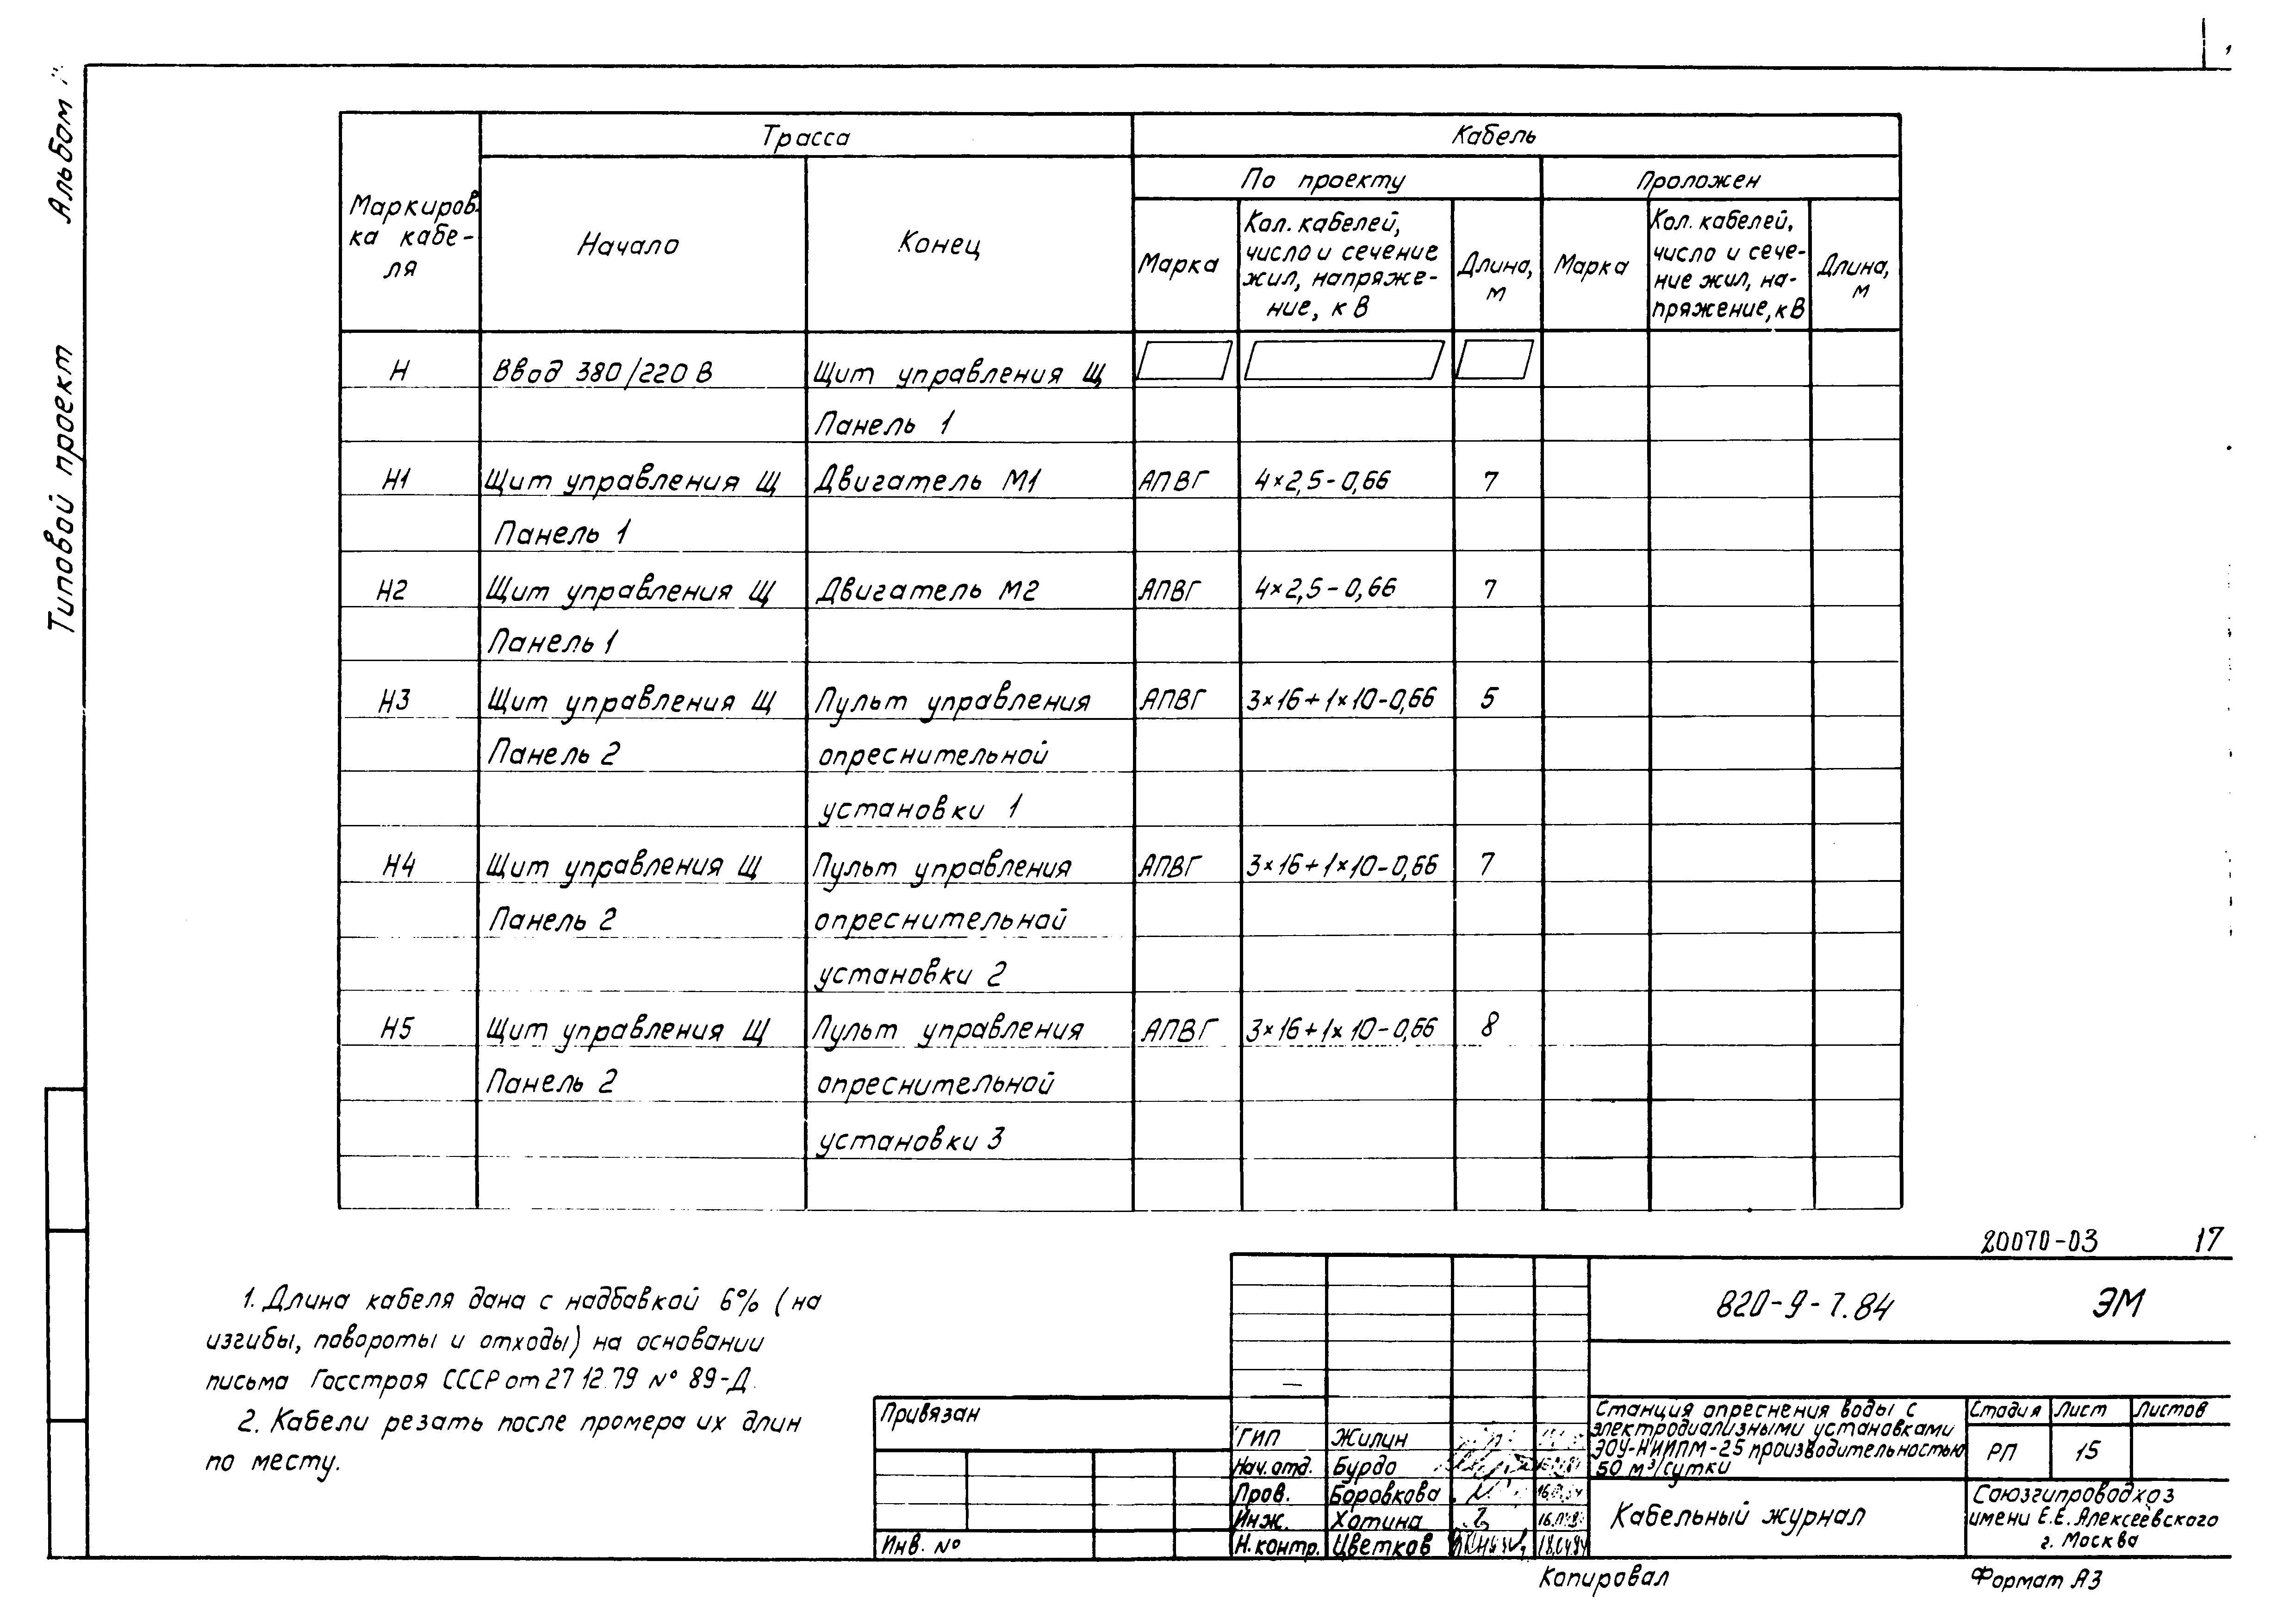 Альбом
Типовой проект
Маркиров-
ка кабе-
ля
Трасса
Кабель
Начало
Конец
По проекту
Проложен
Марка
Кол. кабелей,
число и сечение
жил, напряже-
ние, кВ
Длина,
м
Марка
Кол. кабелей,
число и сече-
ние жил, на-
пряжение, кВ
Длина,
м
Н Ввод 380/220 В Щит управления Щ
Панель 1
Н1 Щит управления Щ Двигатель М1 АПВГ 4×2,5-0,66 7
Панель 1
Н2 Щит управления Щ Двигатель М2 АПВГ 4×2,5-0,66 7
Панель 1
Н3 Щит управления Щ Пульт управления АПВГ 3×16+1×10-0,66 5
Панель 2 опреснительной
установки 1
Н4 Щит управления Щ Пульт управления АПВГ 3×16+1×10-0,66 7
Панель 2 опреснительной
установки 2
Н5 Щит управления Щ Пульт управления АПВГ 3×16+1×10-0,66 8
Панель 2 опреснительной
установки 3
20070-03 17
1. Длина кабеля дана с надбавкой 6% (на
изгибы, повороты и отходы) на основании
письма Госстроя СССР от 27 12.79 № 89-Д.
2. Кабели резать после промера их длин
по месту.
820-9-7.84 ЭМ
Привязан
Инв. №
ГИП Жилин
Нач. отд. Бурдо
Пров. Боровкова
Инж. Хотина
Н. контр. Цветков 18.04.84
Станция опреснения воды с
электродиализными установками
ЭОУ-НИИПМ-25 производительностью
50 м³/сутки
Стадия Лист Листов
РП 15
Кабельный журнал
Союзгипроводхоз
имени Е.Е. Алексеевского
г. Москва
Копировал
Формат А3